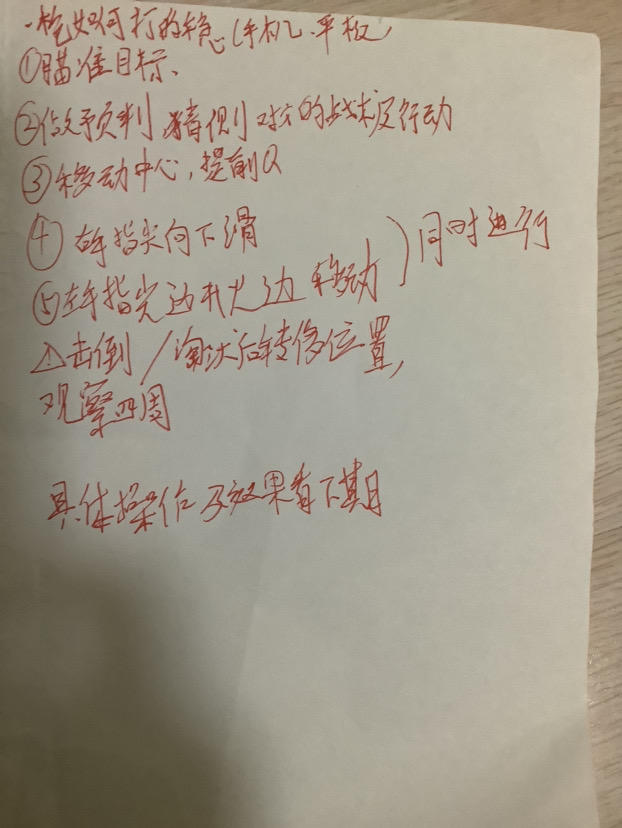 ·枪如何打的稳(手机、平板)
①瞄准目标、
②做预判 猜侧对方的战术及行动
③移动中心,提前Q
④ 右手指尖向下滑
⑤左手指尖边开火边移动 )同时进行
⚠击倒/淘汰后转移位置,
观察四周
具体操作及效果看下期